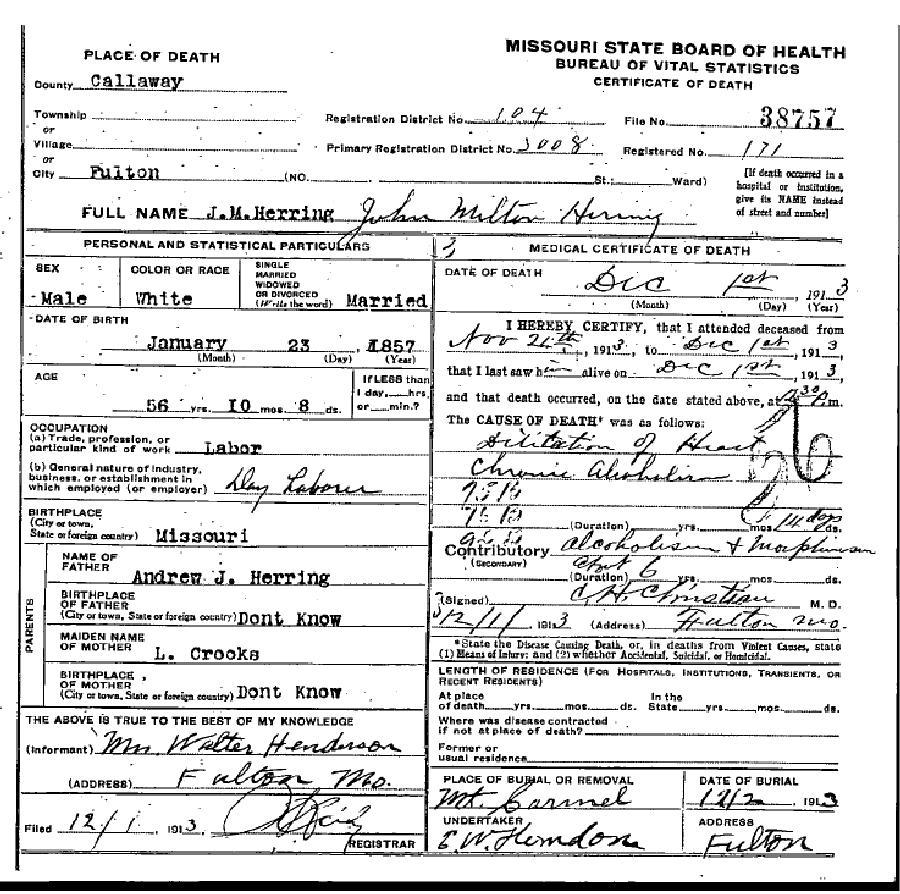 MISSOURI STATE BOARD OF HEALTH
BUREAU OF VITAL STATISTICS
CERTIFICATE OF DEATH
PLACE OF DEATH
County Callaway
Township
or
Village
or
City Fulton (NO. St.; Ward)
Registration District No. 104 File No. 38757
Primary Registration District No. 3008 Registered No. 171
[If death occurred in a
hospital or institution,
give its NAME instead
of street and number]
FULL NAME J.M.Herring John Milton Herring
PERSONAL AND STATISTICAL PARTICULARS
SEX
Male
COLOR OR RACE
White
SINGLE
MARRIED
WIDOWED
OR DIVORCED
(Write the word) Married
DATE OF BIRTH
January 23, 1857
(Month) (Day) (Year)
AGE
56 yrs. 10 mos. 8 ds.
If LESS than
1 day, hrs.
or min.?
OCCUPATION
(a) Trade, profession, or
particular kind of work Labor
(b) General nature of Industry,
business, or establishment in
which employed (or employer) Day Laborer
BIRTHPLACE
(City or town,
State or foreign country) Missouri
PARENTS
NAME OF
FATHER
Andrew J. Herring
BIRTHPLACE
OF FATHER
(City or town, State or foreign country) Dont Know
MAIDEN NAME
OF MOTHER
L. Crooks
BIRTHPLACE
OF MOTHER
(City or town, State or foreign country) Dont Know
THE ABOVE IS TRUE TO THE BEST OF MY KNOWLEDGE
(Informant) Mrs Walter Henderson
(ADDRESS) Fulton Mo.
Filed 12/1, 1913
REGISTRAR
3 MEDICAL CERTIFICATE OF DEATH
DATE OF DEATH
Dec 1st, 1913
(Month) (Day) (Year)
I HEREBY CERTIFY, that I attended deceased from
Nov 24th, 1913, to Dec 1st, 1913
that I last saw him alive on Dec 1st, 1913,
and that death occurred, on the date stated above, at P.m.
The CAUSE OF DEATH* was as follows:
Dilitation of Heart
Chronic Alcoholism
(Duration) yrs. mos. 14 days ds.
Contributory Alcoholism + Morphinism
(SECONDARY)
(Duration) 6 yrs. mos. ds.
(Signed) C.H. Christian M. D.
12/1/1913 (Address) Fulton Mo.
*State the Disease Causing Death, or, in deaths from Violent Causes, state
(1) Means of Injury; and (2) whether Accidental, Suicidal, or Homicidal.
LENGTH OF RESIDENCE (FOR HOSPITALS, INSTITUTIONS, TRANSIENTS, OR
RECENT RESIDENTS)
At place In the
of death yrs. mos. ds. State yrs. mos. ds.
Where was disease contracted
if not at place of death?
Former or
usual residence
PLACE OF BURIAL OR REMOVAL
Mt. Carmel
DATE OF BURIAL
12/2, 1913
UNDERTAKER
E.W. Herndon
ADDRESS
Fulton